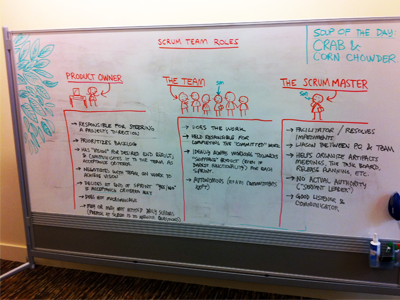 SCRUM TEAM ROLES
SOUP OF THE DAY:
CRAB &
CORN CHOWDER
PRODUCT OWNER
→ RESPONSIBLE FOR STEERING
A PROJECT'S DIRECTION
→ PRIORITIZES BACKLOG
→ HAS "VISION" FOR DESIRED END RESULT;
& COMMUNICATES IT TO THE TEAM
ACCEPTANCE CRITERIA
→ NEGOTIATES WITH TEAM ON WORK TO
ACHIEVE VISION
→ DECIDES AT END OF SPRINT "YES/NO"
IF ACCEPTANCE CRITERIA MET
→ DOES NOT MICROMANAGE
→ MAY OR MAY NOT ATTEND DAILY SCRUMS
THE TEAM
→ DOES THE WORK
→ HELD RESPONSIBLE FOR
COMPLETING THE "COMMITTED" WORK
→ ALWAYS WORKING TOWARDS
"SHIPPABLE" PRODUCT (EVEN IF
FUNCTIONALITY) FOR EACH
SPRINT.
→ AUTONOMOUS
THE SCRUM MASTER
→ FACILITATOR / RESOLVES
IMPEDIMENTS
→ LIAISON BETWEEN PO & TEAM
→ HELPS ORGANIZE ARTIFACTS
MEETINGS, THE TASK BOARD,
RELEASE PLANNING, ETC.
→ NO ACTUAL AUTHORITY
("SERVANT LEADER")
→ GOOD LISTENER &
COMMUNICATOR